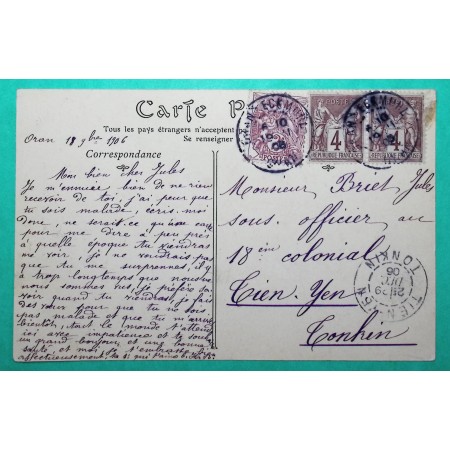 Carte P
Tous les pays étrangers n'acceptent p
Se renseigner
Oran 18 9bre 1906
Correspondance
Mon bien cher Jules
Je m'ennuie bien de ne rien
recevoir de toi, j'ai peur que
tu sois malade, écris-moi
donc ne serait-ce qu'une carte
pour me dire à peu près
à quelle époque tu viendras
me voir, je ne voudrais pas
que tu me surprennes, il y
a trop longtemps que nous
nous sommes vus, je préfère
voir quand tu viendras, je fais
des vœux pour que tu ne sois
pas malade et que tu m'arrives
bientôt, tout le monde t'attend
ici avec impatience et te souhaite
un grand bonjour, et une bonne
santé, et moi je t'embrasse
affectueusement, ta
Monsieur Briet Jules
sous officier au
18ème colonial
Tien-Yen
Tonkin
POSTES
4
REPUBLIQUE FRANÇAISE
4
TIEN-YEN
28 DEC
06
TONKIN